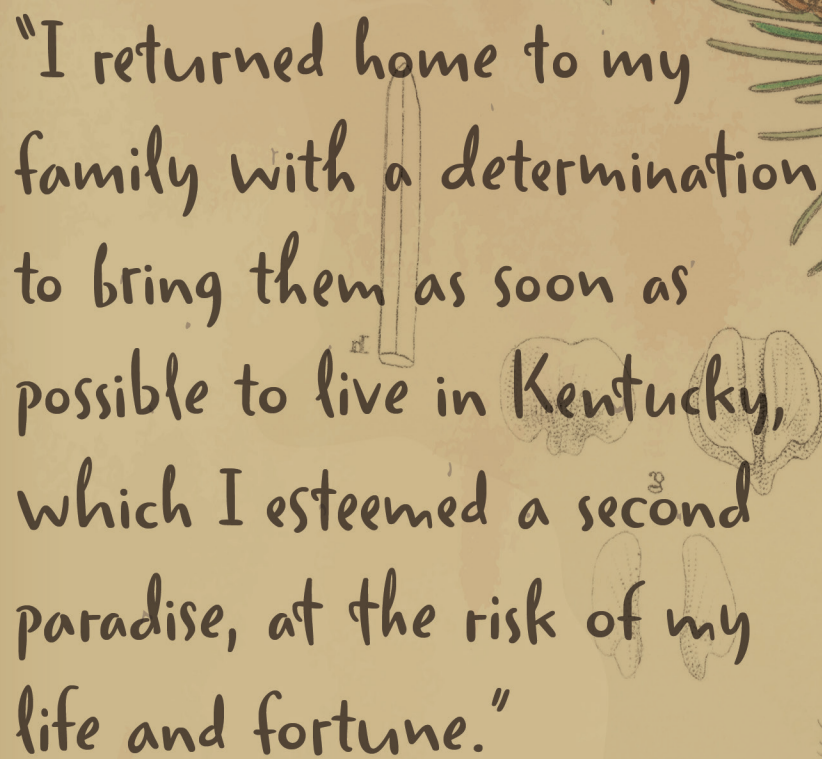 "I returned home to my
family with a determination
to bring them as soon as
possible to live in Kentucky,
which I esteemed a second
paradise, at the risk of my
life and fortune."